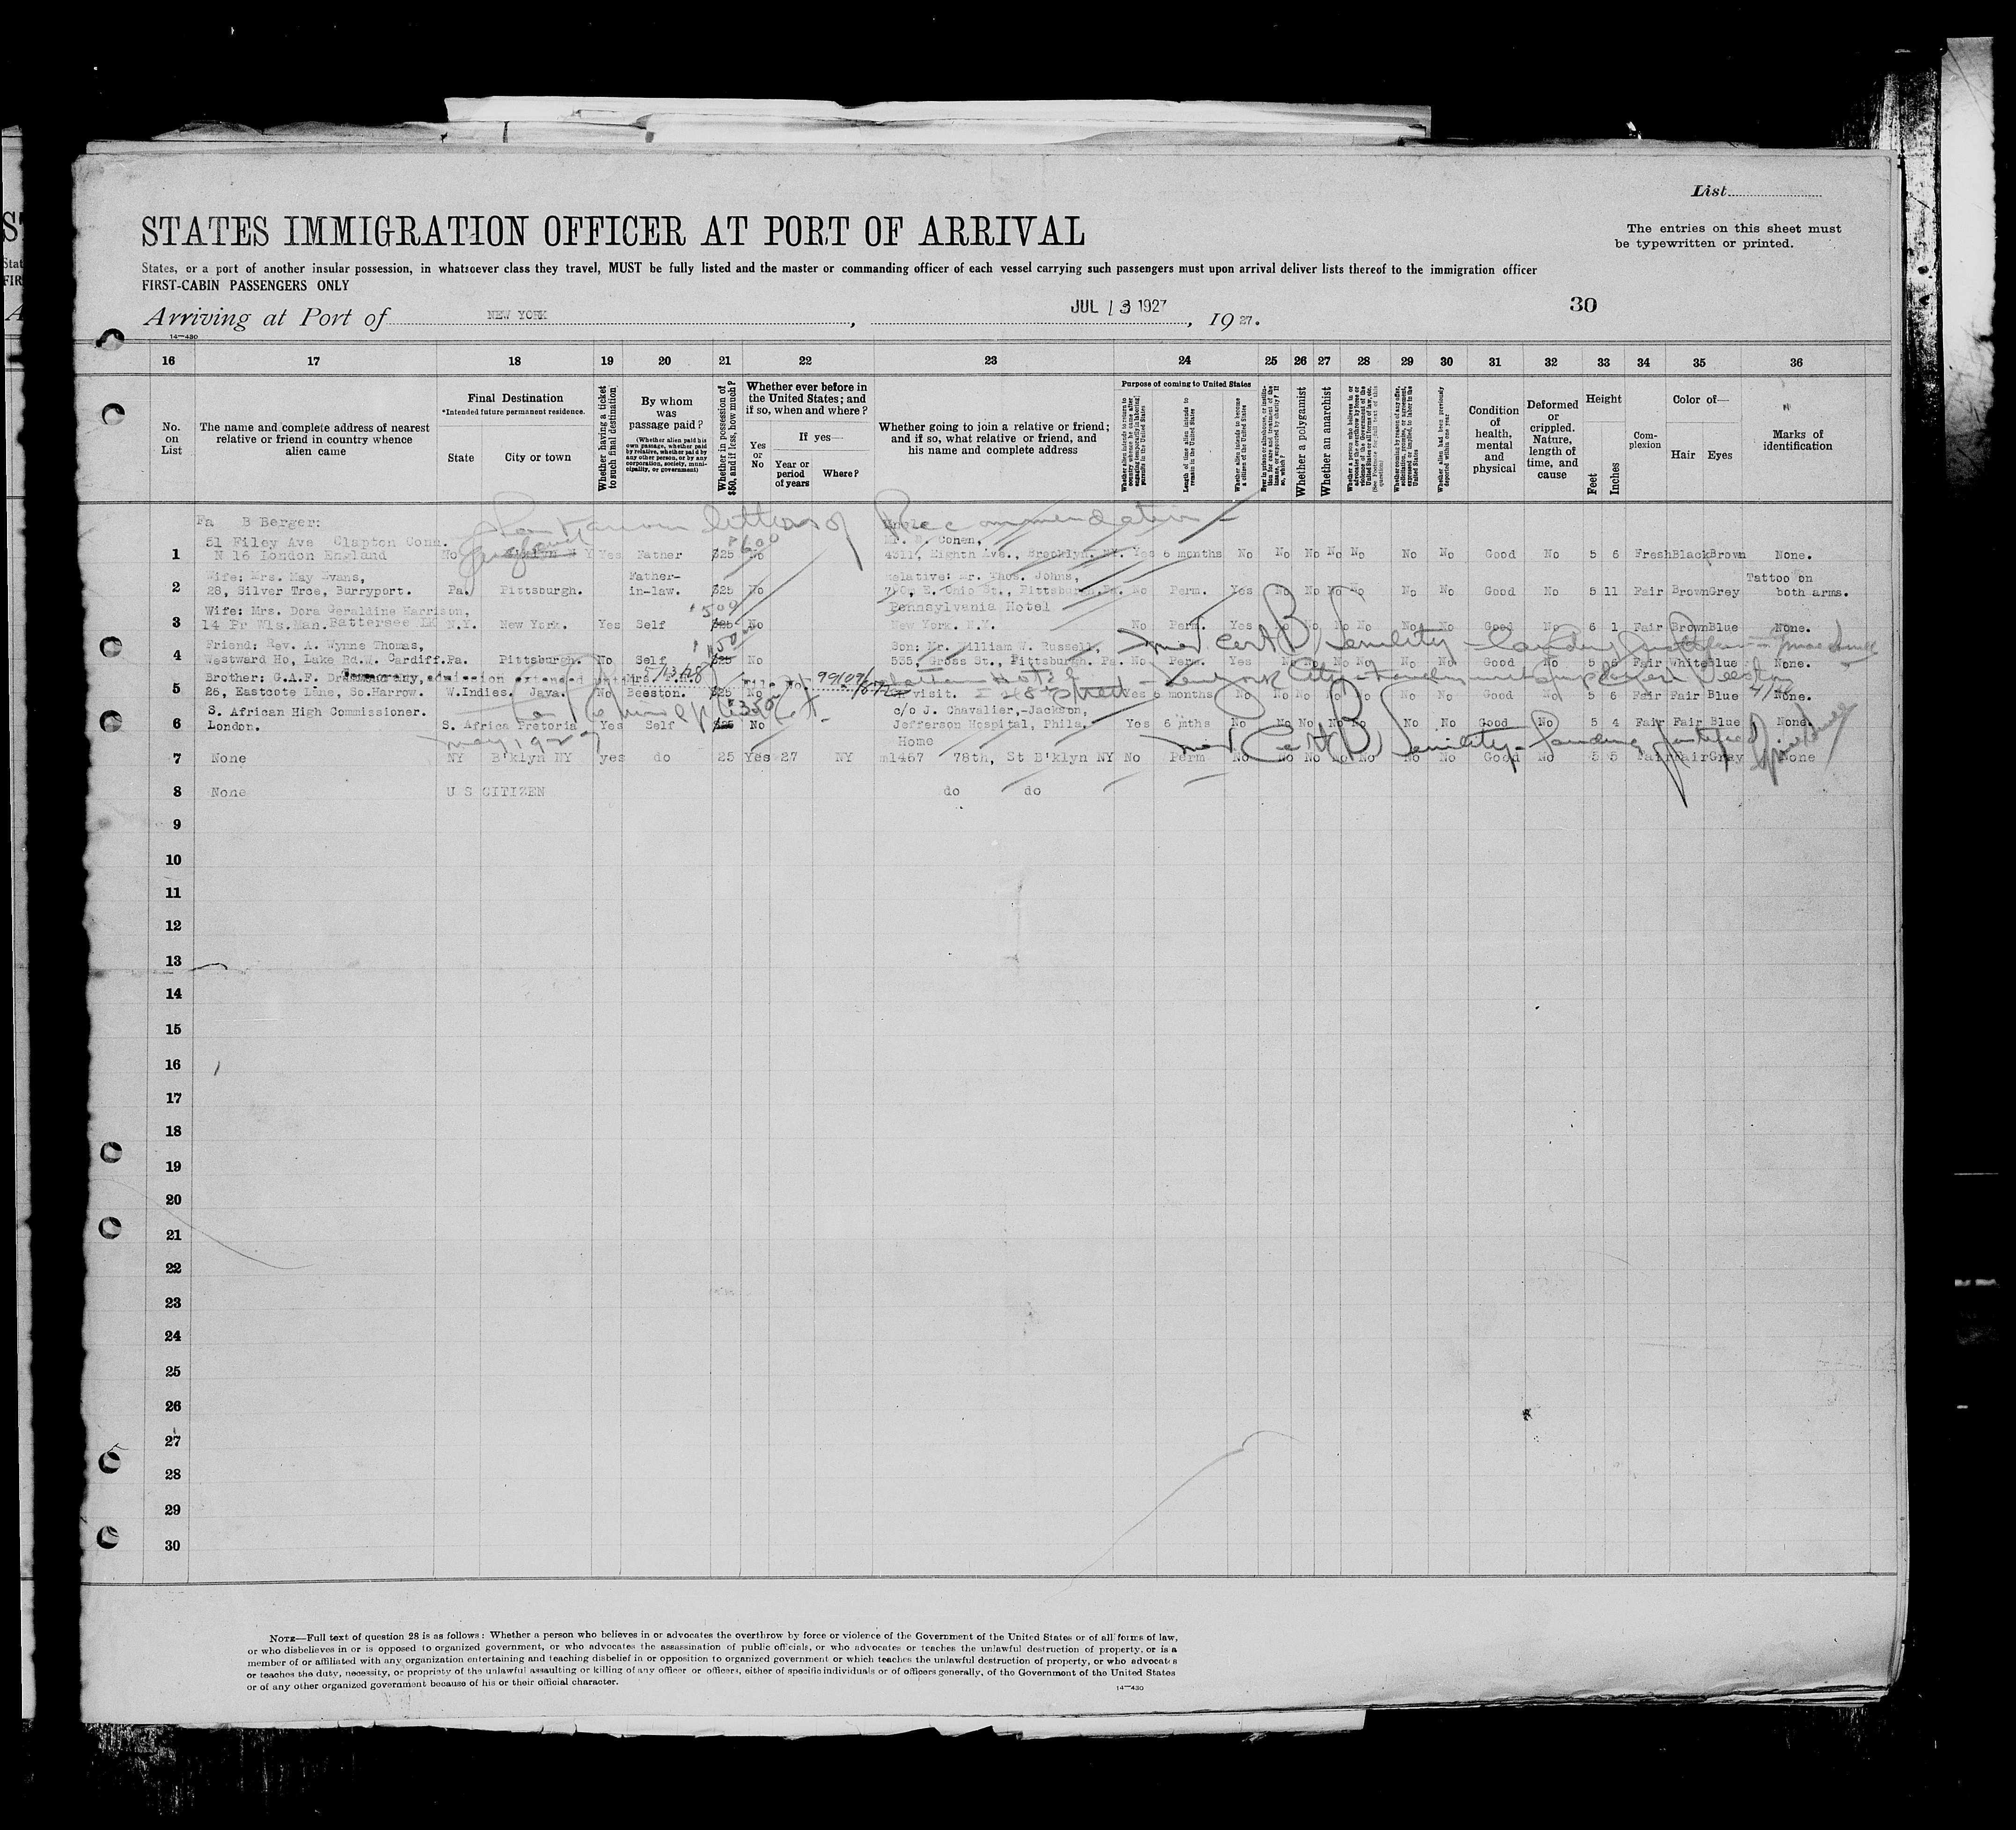 List
STATES IMMIGRATION OFFICER AT PORT OF ARRIVAL
The entries on this sheet must
be typewritten or printed.
States, or a port of another insular possession, in whatsoever class they travel, MUST be fully listed and the master or commanding officer of each vessel carrying such passengers must upon arrival deliver lists thereof to the immigration officer
FIRST-CABIN PASSENGERS ONLY
Arriving at Port of NEW YORK, JUL 13 1927, 1927.
30
14—430
16 17 18 19 20 21 22 23 24 25 26 27 28 29 30 31 32 33 34 35 36
No. on List
The name and complete address of nearest relative or friend in country whence alien came
Final Destination
*Intended future permanent residence.
State
City or town
Whether having a ticket to such final destination
By whom was passage paid?
(Whether alien paid his own passage, whether paid by relative, whether paid by any other person, or by any corporation, society, municipality, or government)
Whether in possession of $50, and if less, how much?
Whether ever before in the United States; and if so, when and where?
Yes or No
If yes—
Year or period of years
Where?
Whether going to join a relative or friend; and if so, what relative or friend, and his name and complete address
Purpose of coming to United States
Length of time alien intends to remain in the United States
Whether alien intends to become a citizen of the United States
Whether a polygamist
Whether an anarchist
Whether alien had been previously deported within one year
Condition of health, mental and physical
Deformed or crippled. Nature, length of time, and cause
Height
Feet
Inches
Complexion
Color of—
Hair
Eyes
Marks of identification
letters of Recommendation
Fa B Berger:
51 Filey Ave Clapton Conn.
Mr. B. Cohen,
1 N 16 London England No Yes Father $25 No 4311, Eighth Ave., Brooklyn. NY. Yes 6 months No No No No No No No Good No 5 6 Fresh Black Brown None.
Wife: Mrs. May Evans, Father- Relative: Mr. Thos. Johns, Tattoo on
2 28, Silver Tree, Burryport. Pa. Pittsburgh. in-law. $25 No E. Ohio St., Pittsburgh. Pa. No Perm. Yes No No No No No No Good No 5 11 Fair Brown Grey both arms.
Wife: Mrs. Dora Geraldine Harrison, Pennsylvania Hotel
3 14 Pr Wls. Man. Battersee N.Y. New York. Yes Self $25 No New York. N.Y. No Perm. Yes No No No No No No Good No 6 1 Fair Brown Blue None.
Friend: Rev. A. Wynne Thomas, Son: Mr. William W. Russell,
Med cert B Senility
4 Westward Ho, Lake Rd. W. Cardiff. Pa. Pittsburgh. No Self $25 No 535, Gross St., Pittsburgh. Pa. No Perm. Yes No No No No No No Good No 5 6 Fair White Blue None.
Brother: G.A.F.
Temporary admission extended until 5/13/28 File No. 99109/
Hotel
New York City
5 26, Eastcote Lane, So. Harrow. W.Indies. Java. No Beeston. $25 No On visit. Yes 6 months No No No No No No No Good No 5 6 Fair Fair Blue None.
S. African High Commissioner. c/o J. Chavalier,-Jackson,
6 London. S. Africa Pretoria Yes Self $25 No Jefferson Hospital, Phila. Yes 6 mths No No No No No No No Good No 5 4 Fair Fair Blue None.
May 1927
Home
Med Cert B Senility
7 None NY B'klyn NY yes do 25 Yes 27 NY m1467 78th, St B'klyn NY No Perm No No No No No No No Good No 5 5 Fair Fair Gray None
8 None U S CITIZEN do do
9
10
11
12
13
14
15
16
17
18
19
20
21
22
23
24
25
26
27
28
29
30
NOTE—Full text of question 28 is as follows: Whether a person who believes in or advocates the overthrow by force or violence of the Government of the United States or of all forms of law,
or who disbelieves in or is opposed to organized government, or who advocates the assassination of public officials, or who advocates or teaches the unlawful destruction of property, or is a
member of or affiliated with any organization entertaining and teaching disbelief in or opposition to organized government or which teaches the unlawful destruction of property, or who advocates
or teaches the duty, necessity, or propriety of the unlawful assaulting or killing of any officer or officers, either of specific individuals or of officers generally, of the Government of the United States
or of any other organized government because of his or their official character.
14—430